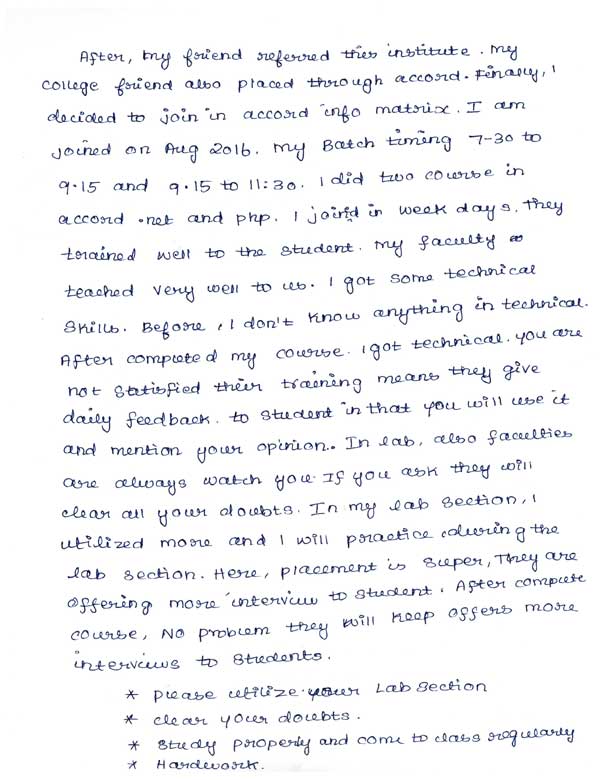 After, my friend referred this institute. My
college friend also placed through accord. Finally, I
decided to join in accord info matrix. I am
joined on Aug 2016. My Batch timing 7-30 to
9.15 and 9.15 to 11:30. I did two course in
accord .net and php. I joind in week days. They
trained well to the student. My faculty
teached very well to us. I got some technical
skills. Before, I don't know anything in technical.
After completed my course. I got technical. you are
not statisfied their training means they give
daily feedback. to student in that you will use it
and mention your opinion. In lab, also faculties
are always watch you. If you ask they will
clear all your doubts. In my lab section, I
utilized more and I will practice during the
lab section. Here, placement is super, They are
offering more interview to student. After complete
course, No problem they will keep offers more
interviews to students.
* please utilize your Lab section
* clear your doubts.
* study properly and come to class regularly
* Hardwork.